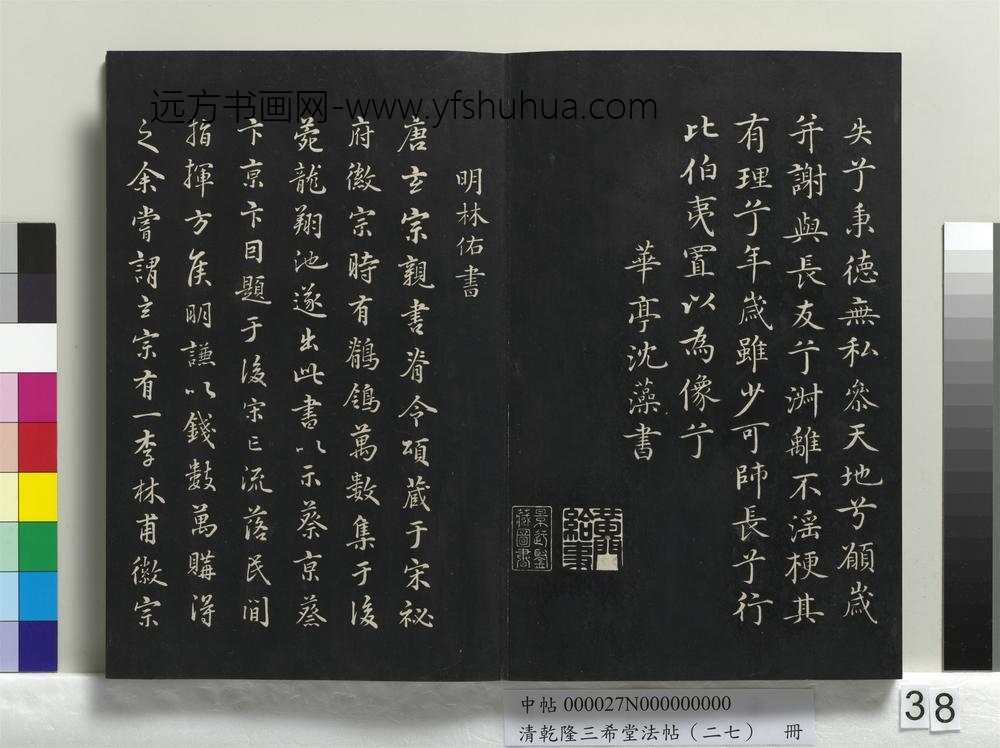 远方书画网-www.yfshuhua.com
失兮秉德無私參天地兮願歲
并謝與長友兮淑離不滛梗其
有理兮年歲雖少可師長兮行
比伯夷置以為像兮
華亭沈藻書
黃門
給事
景賢鑒
藏圖書
明林佑書
唐玄宗親書脊令頌蔵于宋祕
府徽宗時有鶺鴒萬数集于後
菀龍翔池遂出此書以示蔡京蔡
卞京卞因題于後宋亡流落民间
指揮方侯明謙以錢數萬購得
之余嘗謂玄宗有一李林甫徽宗
中帖 000027N000000000
清乾隆三希堂法帖（二七） 冊
38